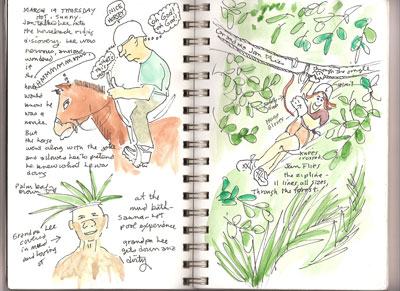 MARCH 19 THURSDAY
HOT, SUNNY.
Jan talked Lee into
the horseback riding
discovery. Lee was
nervous, anxious
wondered
if
the
horse
would
know he
was a
novice.
But
the horse
went along with the joke
and allowed Lee to pretend
he knew what he was
doing
NICE
HORSEY
OH GOD
OH GOD
OH GOD
HMMMMMMM
Palm body
Grandpa Lee
covered
in mud
and loving
it
at the
mud bath-
sauna-hot
pool experience
grandpa Lee
gets down and
dirty
through the jungle
knees
crossed
Jan Flies
the zipline -
11 lines all sizes
Through the forest.